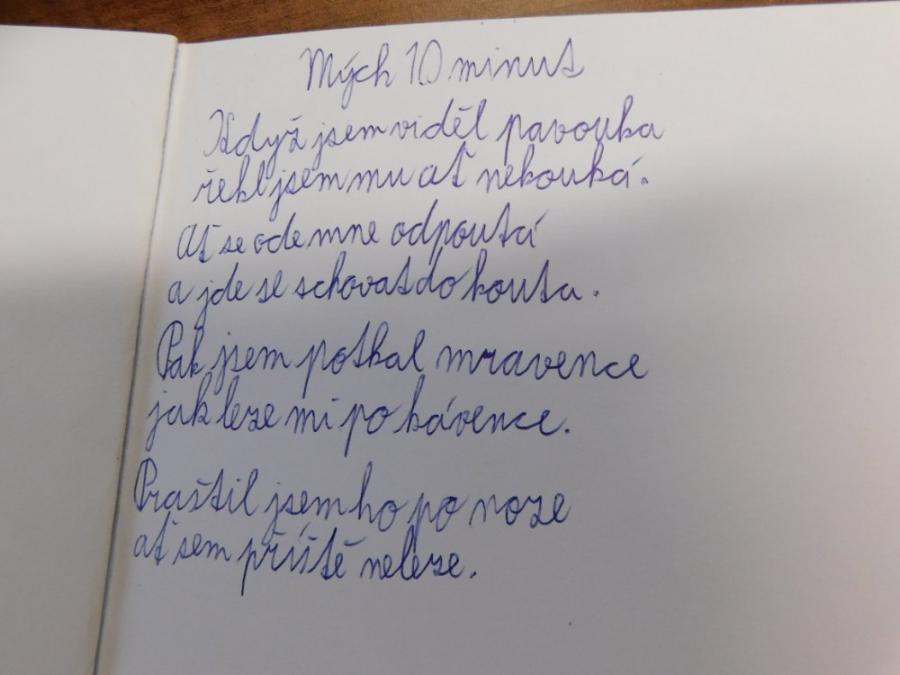 Mých 10 minut
Když jsem viděl pavouka
řekl jsem mu ať nekouká.
Ať se odemne odpoutá
a jde se schovat do kouta.
Pak jsem potkal mravence
jak leze mi po kávence.
Praštil jsem ho po noze
ať sem příště neleze.